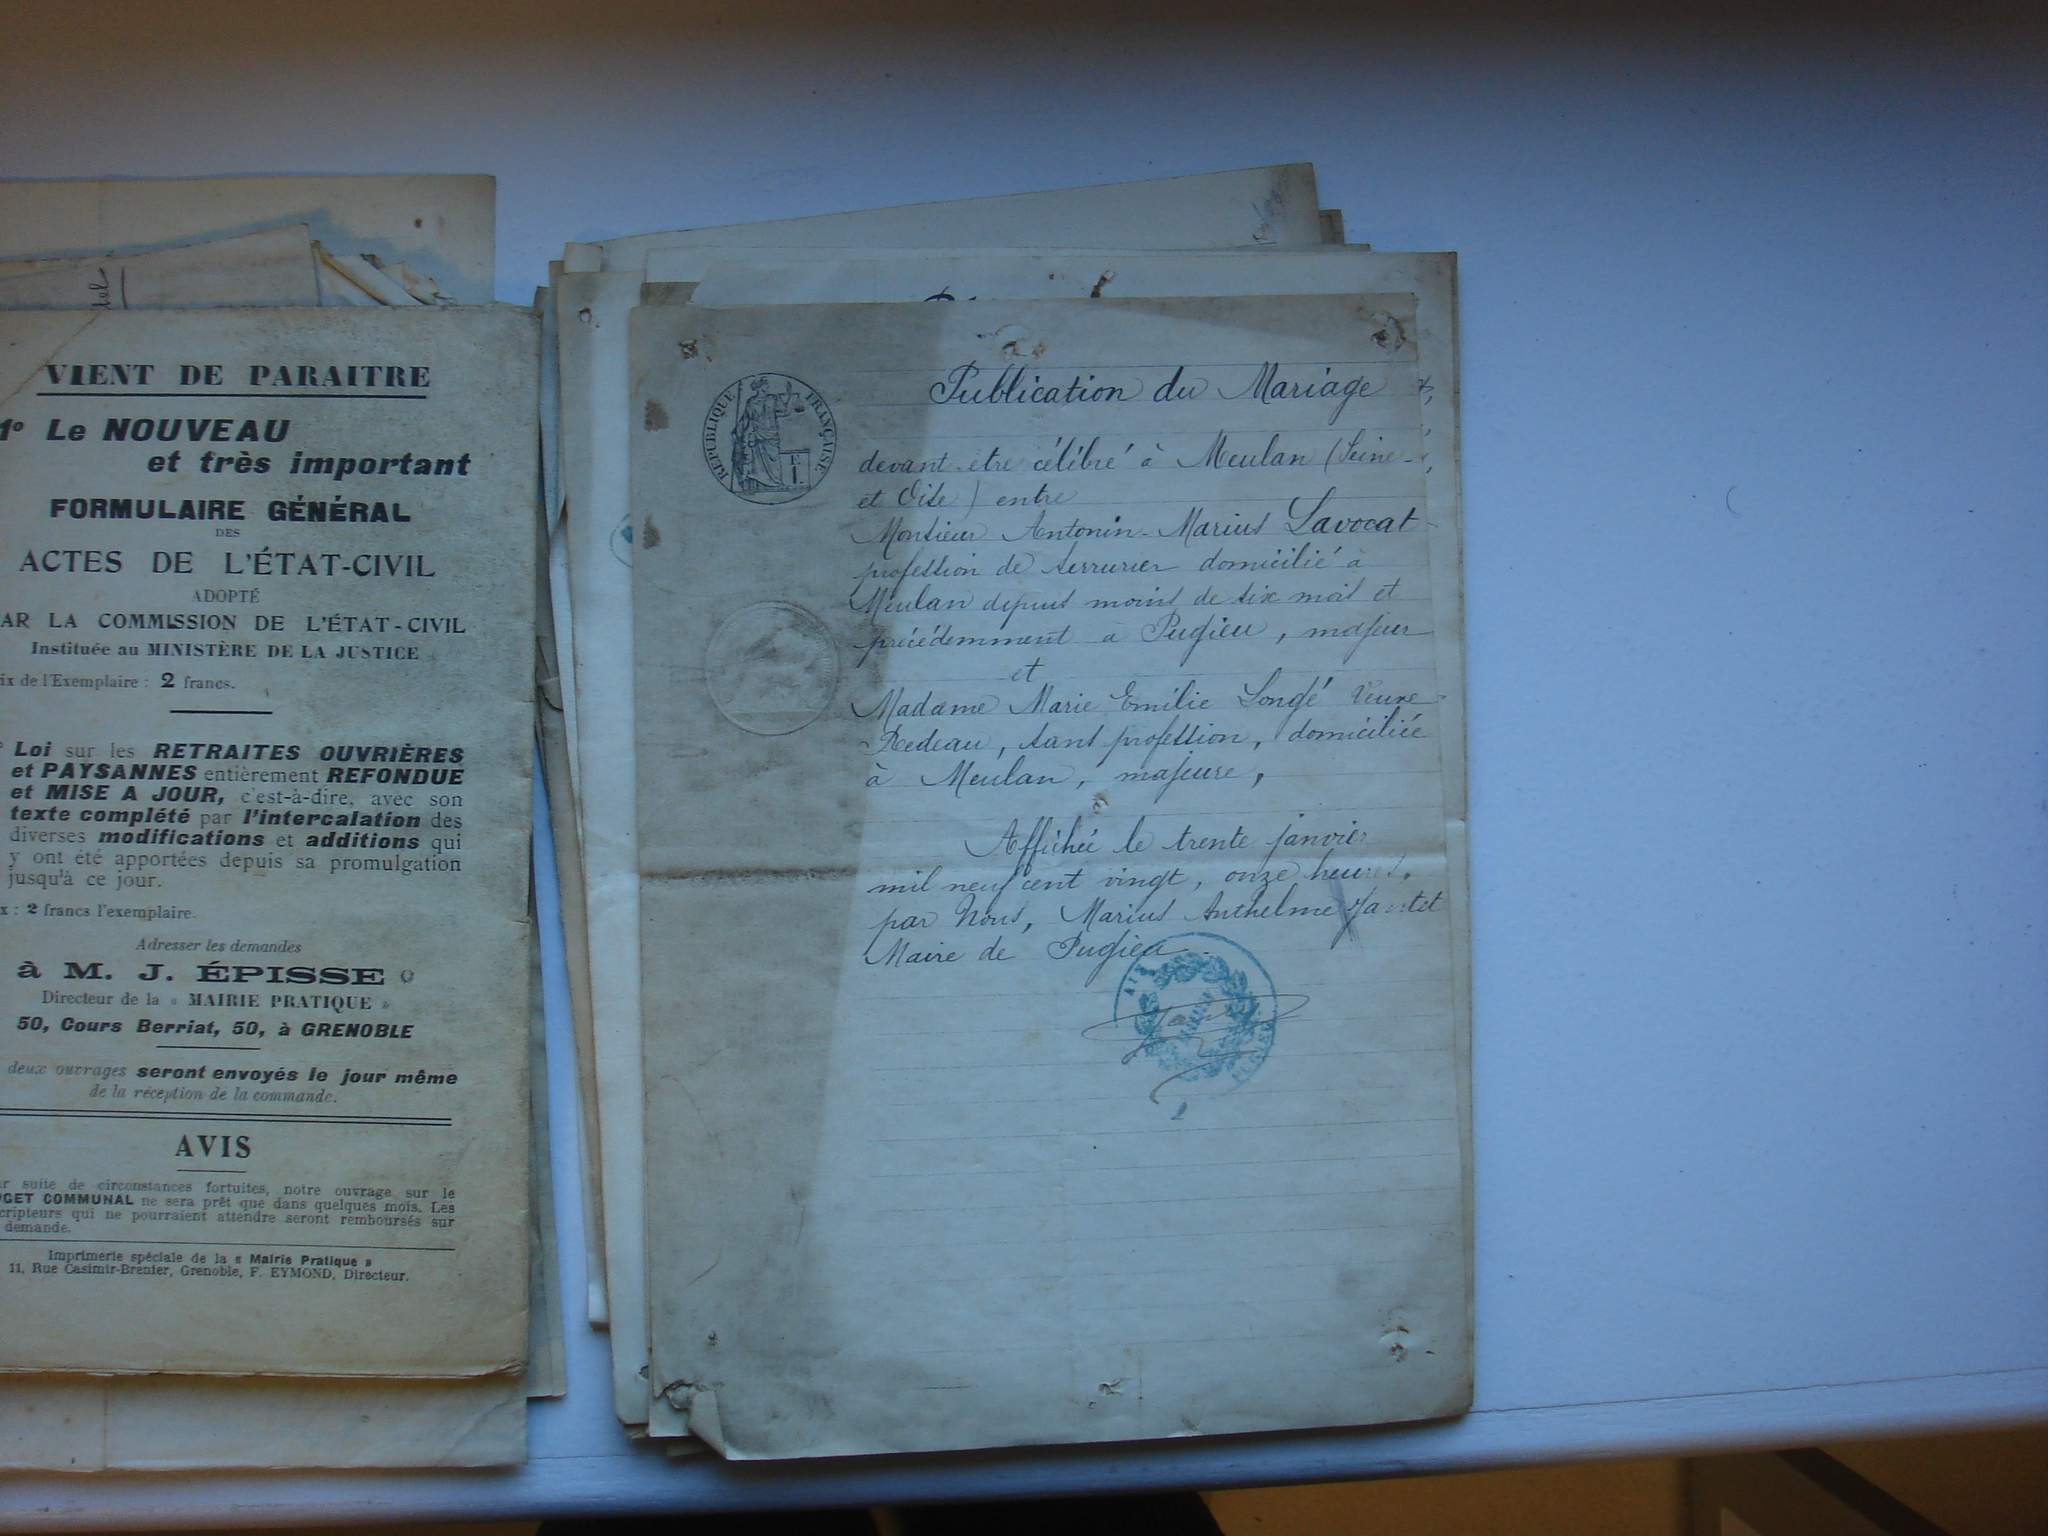 VIENT DE PARAITRE
1º Le NOUVEAU
et très important
FORMULAIRE GÉNÉRAL
DES
ACTES DE L'ÉTAT-CIVIL
ADOPTÉ
AR LA COMMISSION DE L'ÉTAT-CIVIL
Instituée au MINISTÈRE DE LA JUSTICE
ix de l'Exemplaire : 2 francs.
º Loi sur les RETRAITES OUVRIÈRES
et PAYSANNES entièrement REFONDUE
et MISE A JOUR, c'est-à-dire, avec son
texte complété par l'intercalation des
diverses modifications et additions qui
y ont été apportées depuis sa promulgation
jusqu'à ce jour.
x : 2 francs l'exemplaire.
Adresser les demandes
à M. J. ÉPISSE
Directeur de la « MAIRIE PRATIQUE »
50, Cours Berriat, 50, à GRENOBLE
deux ouvrages seront envoyés le jour même
de la réception de la commande.
AVIS
ar suite de circonstances fortuites, notre ouvrage sur le
GET COMMUNAL ne sera prêt que dans quelques mois. Les
cripteurs qui ne pourraient attendre seront remboursés sur
demande.
Imprimerie spéciale de la « Mairie Pratique »
11, Rue Casimir-Brenier, Grenoble, F. EYMOND, Directeur.
RÉPUBLIQUE FRANÇAISE
Publication du Mariage
devant être célébré à Meulan (Seine-
et Oise) entre
Monsieur Antonin-Marius Lavocat
profession de serrurier domicilié à
Meulan depuis moins de six mois et
précédemment à Pugieu, majeur
et
Madame Marie Emilie Longé Veuve
Redeau, sans profession, domiciliée
à Meulan, majeure,
Affichée le trente janvier
mil neuf cent vingt, onze heures.
par Nous, Marius Anthelme
Maire de Pugieu.
AIN
MAIRIE
PUGIEU